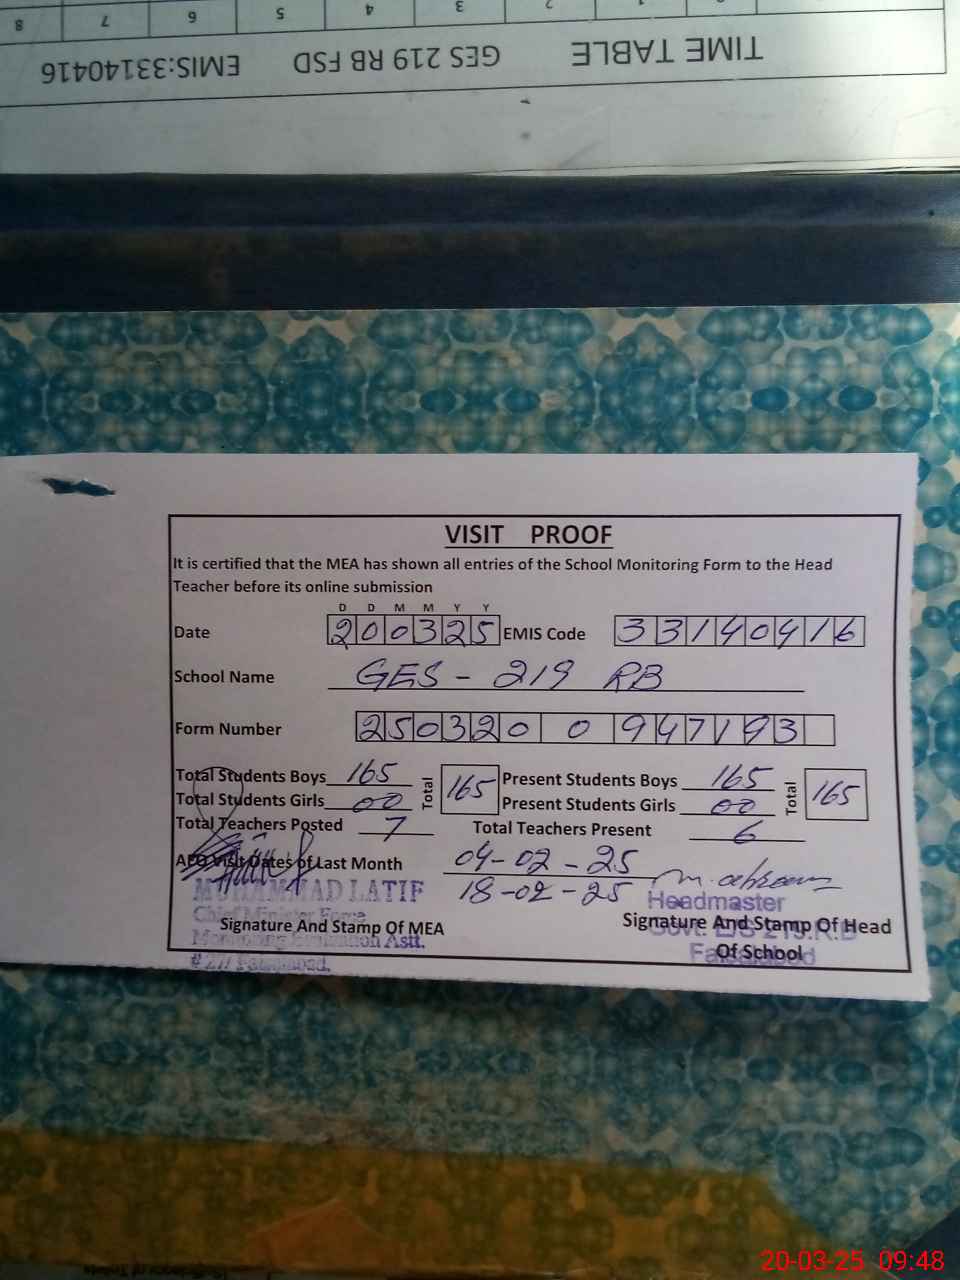 8 7 6 5 4 3 2 1
TIME TABLE GES 219 RB FSD EMIS:33140416
VISIT PROOF
It is certified that the MEA has shown all entries of the School Monitoring Form to the Head
Teacher before its online submission
D D M M Y Y
Date 200325 EMIS Code 33140416
School Name GES - 219 RB
Form Number 250320 0 947193
Total Students Boys 165 Total 165 Present Students Boys 165 Total 165
Total Students Girls 00 Present Students Girls 00
Total Teachers Posted 7 Total Teachers Present 6
AEO Visit Dates of Last Month 04-02-25
18-02-25
MUHAMMAD LATIF
Headmaster
Chief Minister
Signature And Stamp Of MEA
Signature And Stamp Of Head
Govt. E/S 219.R.B
Monitoring Evaluation Astt.
Of School
Faisalabad
Faisalabad.
20-03-25 09:48